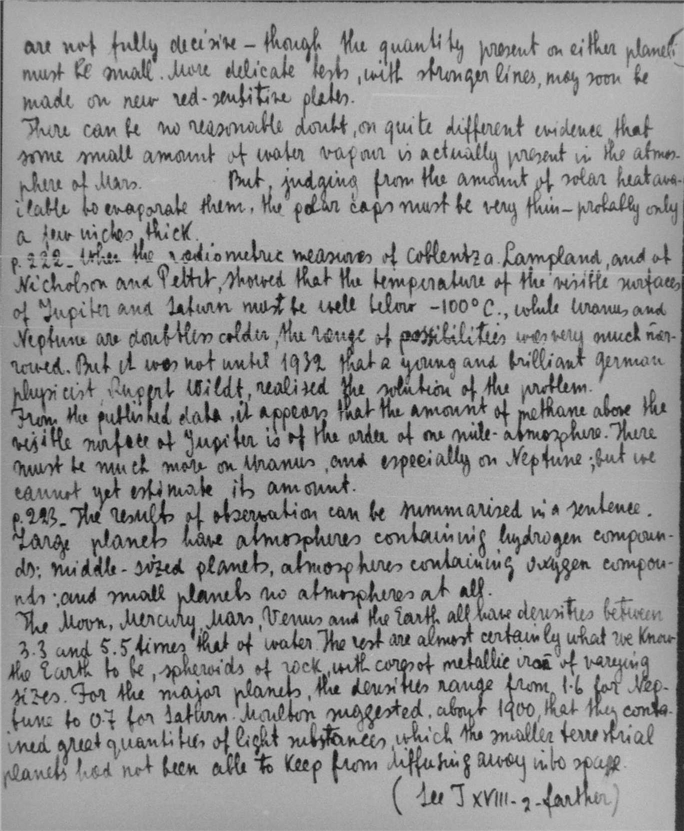 are not fully decisive – though the quantity present on either planet
must be small. More delicate tests, with stronger lines, may soon be
made on new red-sensitive plates.
There can be no reasonable doubt, on quite different evidence that
some small amount of water vapour is actually present in the atmos-
phere of Mars. But, judging from the amount of solar heat ava-
ilable to evaporate them, the polar caps must be very thin – probably only
a few inches thick.
p.222_ When the radiometric measures of Coblentz a. Lampland, and of
Nicholson and Pettit, showed that the temperature of the visible surfaces
of Jupiter and Saturn must be well below -100°C., while Uranus and
Neptune are doubtless colder, the range of possibilities was very much nar-
rowed. But it was not until 1932 that a young and brilliant german
physicist, Rupert Wildt, realised the solution of the problem.
From the published data, it appears that the amount of methane above the
visible surface of Jupiter is of the order of one mile-atmosphere. There
must be much more on Uranus, and especially on Neptune; but we
cannot yet estimate its amount.
p.223_ The results of observation can be summarised in a sentence.
Large planets have atmospheres containing hydrogen compoun-
ds; middle-sized planets, atmospheres containing oxygen compou-
nds; and small planets no atmospheres at all.
The Moon, Mercury, Mars, Venus and the Earth all have densities between
3.3 and 5.5 times that of water. The rest are almost certainly what we know
the Earth to be, spheroids of rock, with cores of metallic iron of varying
sizes. For the major planets, the densities range from 1.6 for Nep-
tune to 0.7 for Saturn. Moulton suggested, about 1900, that they conta-
ined great quantities of light substances, which the smaller terrestrial
planets had not been able to keep from diffusing away into space.
(See J XVIII-2-farther)